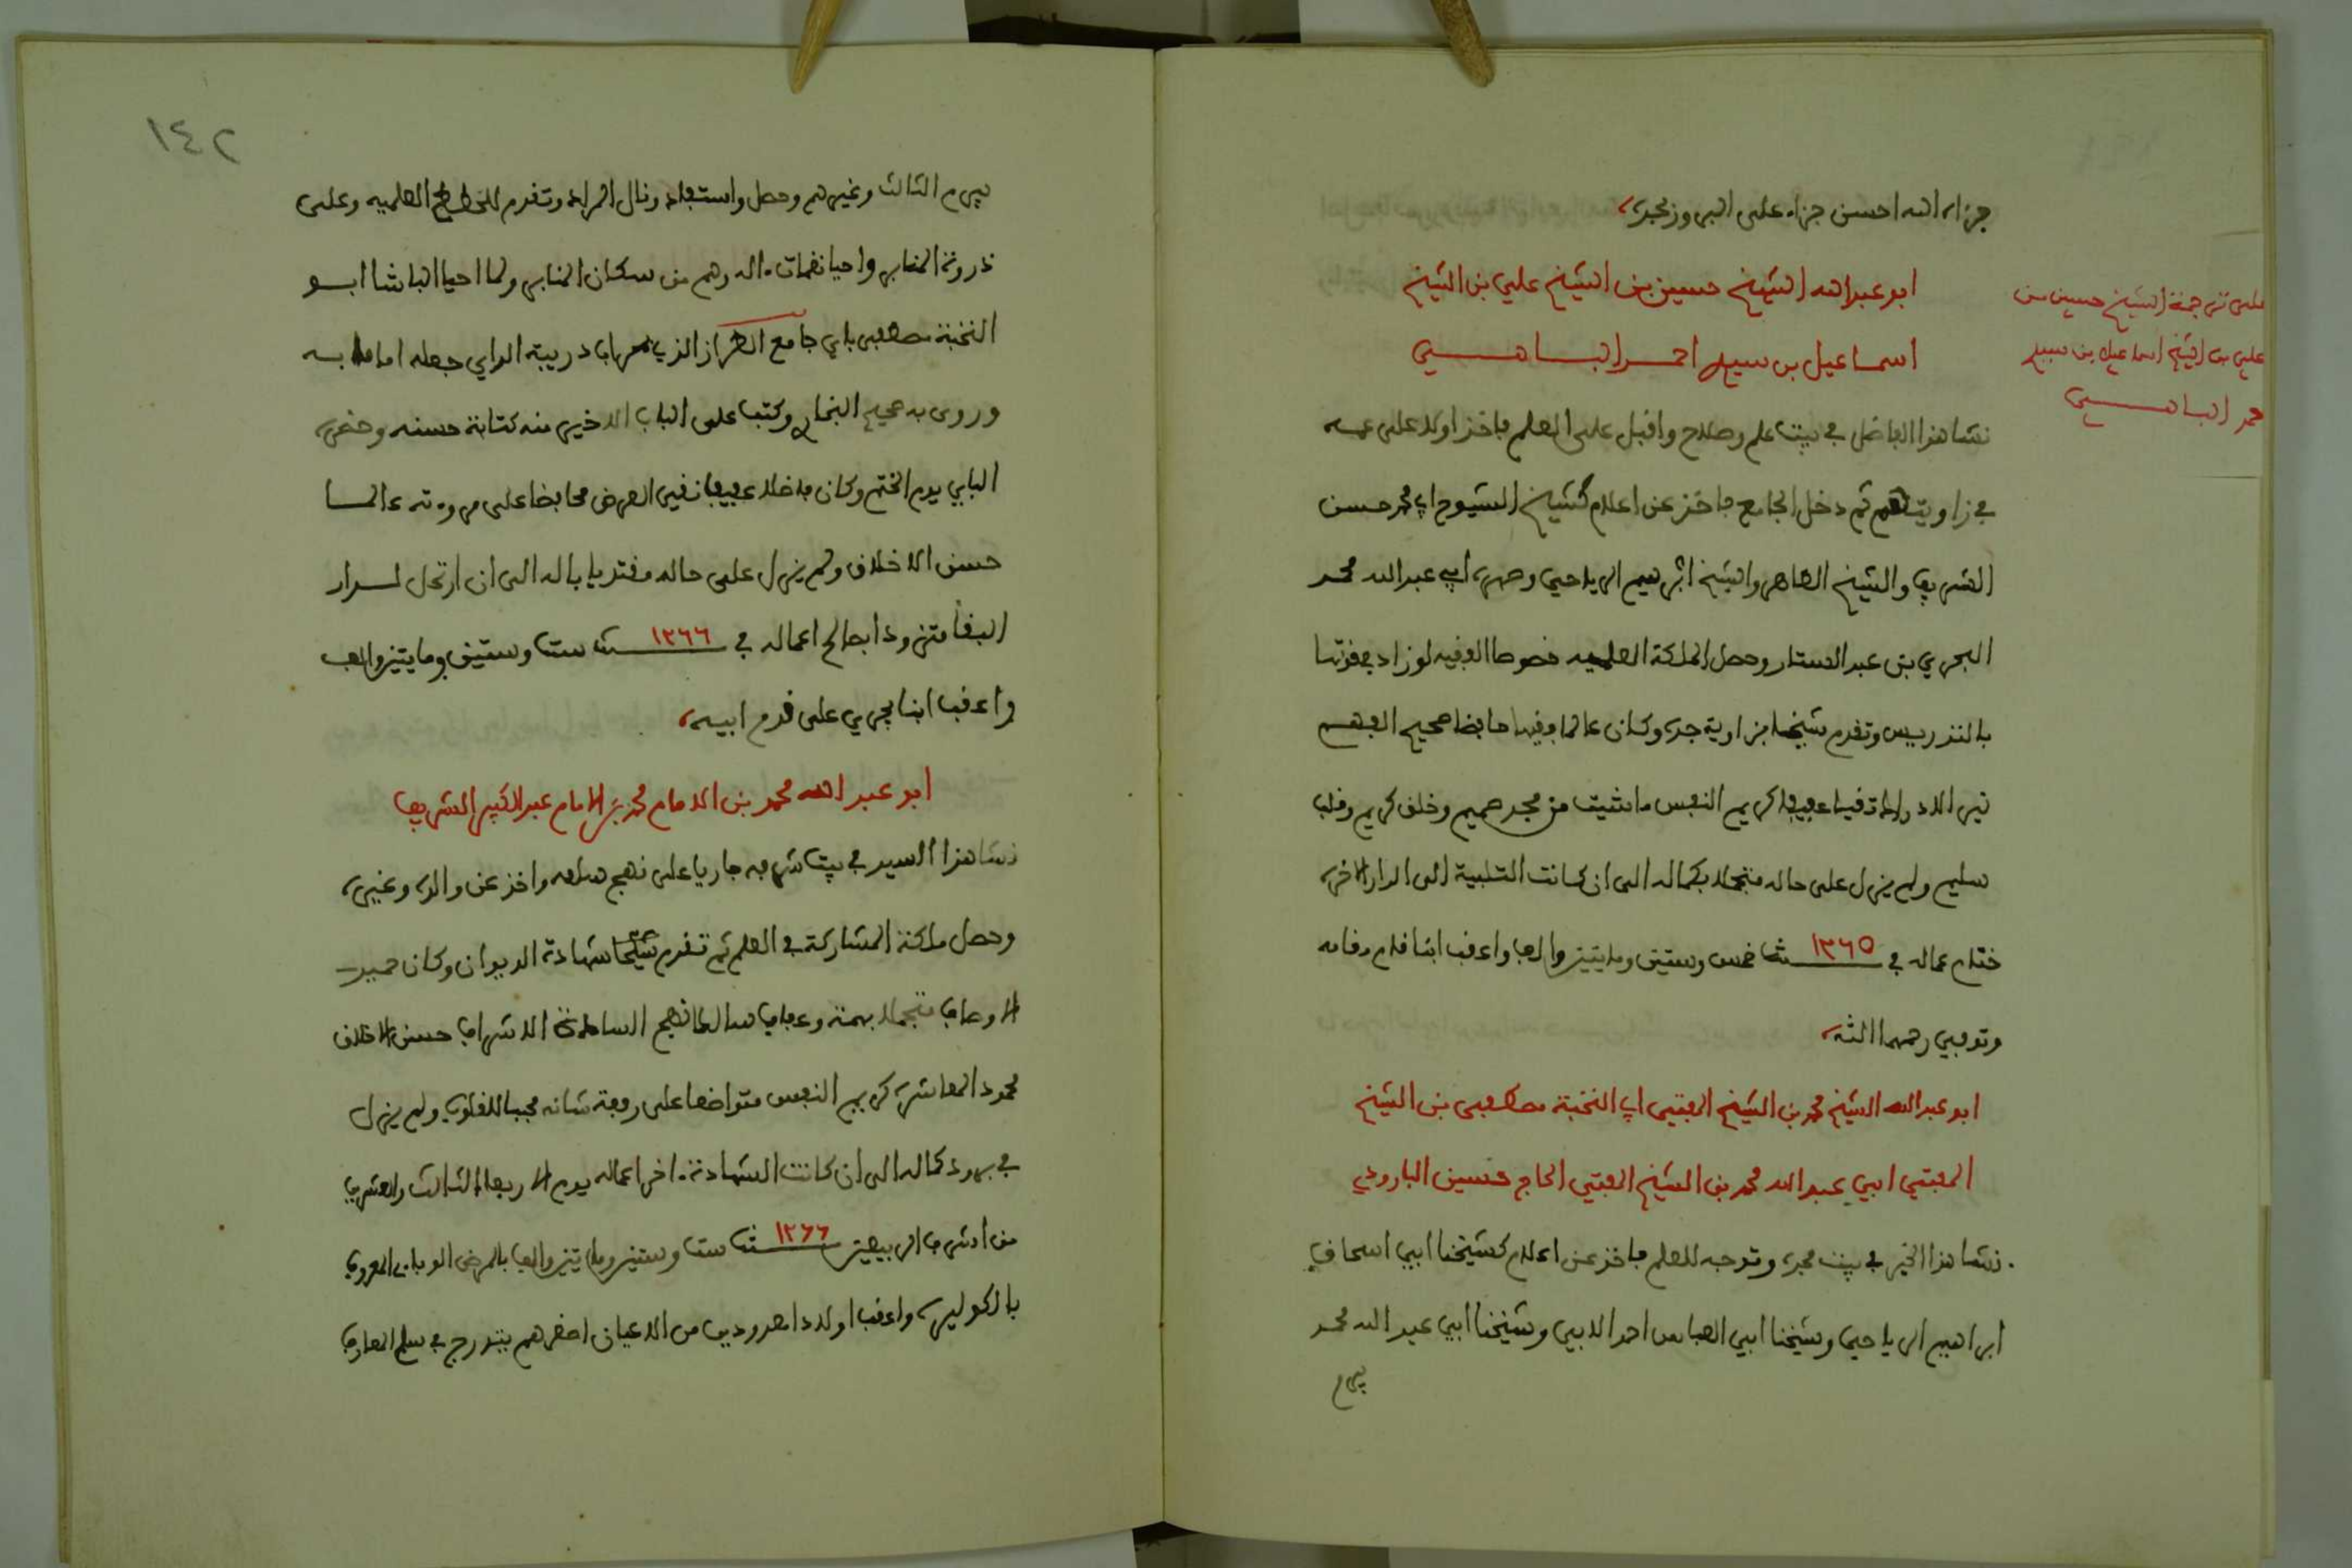 جزاه الله احسن جزاء على البر وزمجده
ابو عبد الله الشيخ حسين بن الشيخ علي بن الشيخ
اسماعيل بن سيد احمد الباهي
على ترجمة الشيخ حسين بن
علي بن الشيخ اسماعيل بن سيد
حمد الباهي
نشا هذا الفاضل في بيت علم وصلاح واقبل على العلم فاخذ اولا على عمه
في زاويتهم ثم دخل الجامع فاخذ عن اعلام كشيخ الشيوخ ابي محمد حسن
الشريف والشيخ الطاهر والشيخ ابرهيم الرياحي وصهره ابي عبد الله محمد
البحري بن عبد الستار وحصل الملكة العلميه خصوصا الفقيه لو زاد في قوتها
بالتدريس وتقدم شيخا بزاوية جده وكان عالما فقيها حافظا صحيح الفهم
نير الادراك تقيا عفيفا كريم النفس ما شيت من مجد صميم وخلق كريم وقلب
سليم ولم يزل على حاله متجملا بكماله الى ان كانت التلبية الى الدار الاخره
ختام عماله في ١٢٦٥ سنة خمس وستين ومايتين والف واعقب ابنا قام مقامه
وتوفي رحمهما الله
ابو عبد الله الشيخ محمد بن الشيخ المفتي ابي النخبة مصطفى بن الشيخ
المفتي ابي عبد الله محمد بن الشيخ المفتي الحاج حسين البارودي
نشا هذا الخير في بيت مجده وتوجه للعلم فاخذ عن اعلام كشيخنا ابي اسحاق
ابراهيم الرياحي وشيخنا ابي العباس احمد الابي وشيخنا ابي عبد الله محمد
بيرم
١٤٢
بيرم الثالث وغيرهم وحصل واستفاد ونال المراد وتقدم للخطط العلميه وعلى
ذروة المنابر واحيا نغمات اله وهم من سكان المنابر ولما احيا الباشا ابو
النخبة مصطفى باي جامع الطراز الذي بدريبة الراي جعله اماما به
وروى به صحيح البخاري وكتب على الباب الاخير منه كتابة حسنه وحضره
الباي يوم الختم وكان فاضلا عفيفا نقي العرض محافظا على مروءته عالما
حسن الاخلاق ولم يزل على حاله مقتديا باله الى ان ارتحل لدار
البقا متزودا بصالح اعماله في ١٢٦٦ سنة ست وستين ومايتين والف
واعقب ابنا يجري على قدم ابيه
ابو عبد الله محمد بن الامام محمد بن الامام عبد الكبير الشريف
نشا هذا السيد في بيت شرفه جاريا على نهج سلفه واخذ عن والده وغيره
وحصل ملكة المشاركة في العلم ثم تقدم شيخا شهادة الديوان وكان حميد
الاوصاف متجملا بهمة وعفاف سالكا نهج السادة الاشراف حسن الاخلاق
محمود المعاشره كريم النفس متواضعا على رفعة شانه محببا للقلوب ولم يزل
في برود كماله الى ان كانت الشهادة اخر اعماله يوم الاربعا الثالث والعشرين
من اشرف الربيعين ١٢٦٦ سنة ست وستين ومايتين والف بالمرض الوبايي المعروف
بالكوليره واعقب اولادا معدودين من الاعيان اصغرهم يتدرج في سلم المعارف